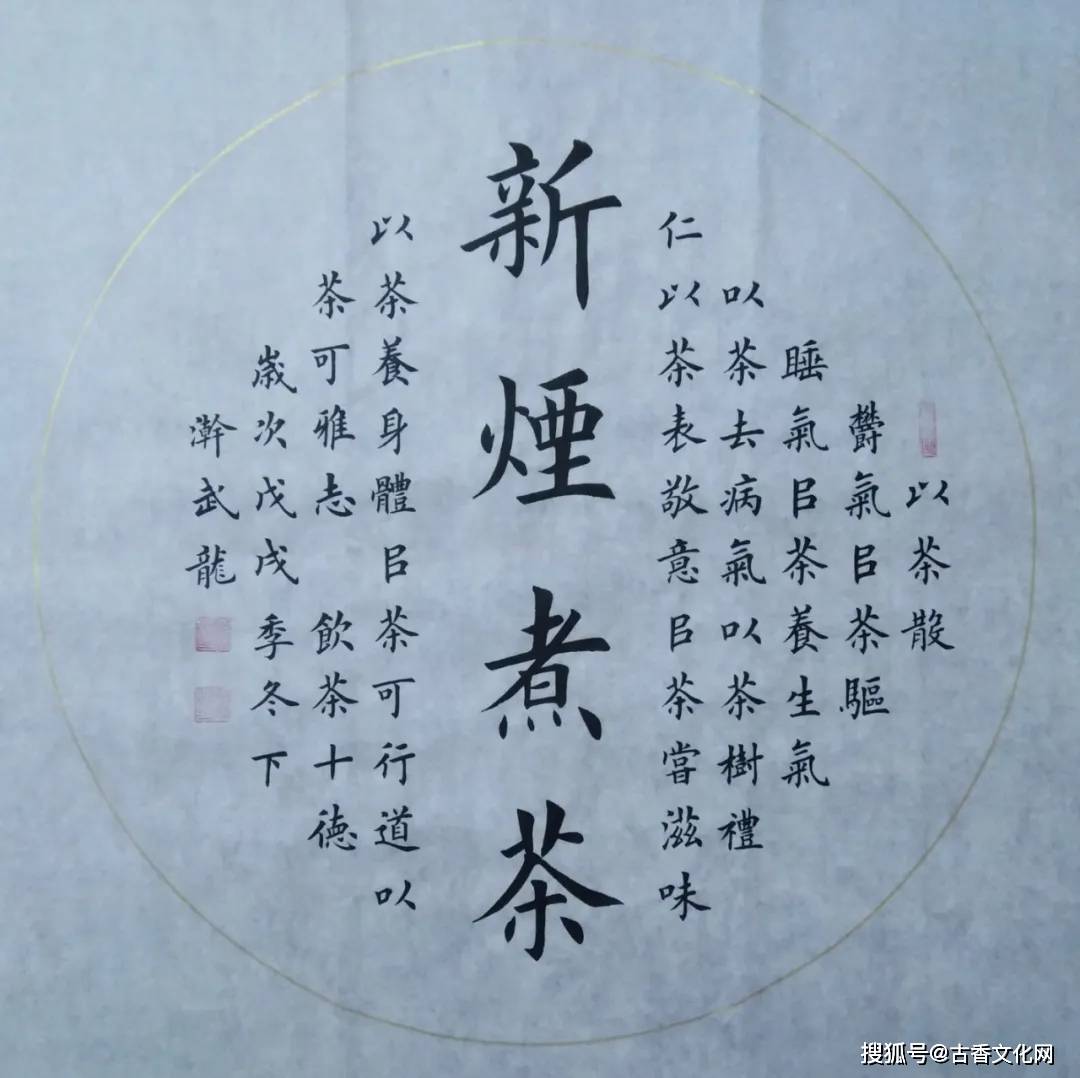 以茶散
欝氣㠯茶驅
睡氣㠯茶養生氣
以茶去病氣以茶樹禮
仁以茶表敬意㠯茶嘗滋味
新煙煮茶
以茶養身體㠯茶可行道以
茶可雅志 飲茶十德
歲次戊戌季冬下
澣武龍
搜狐号@古香文化网